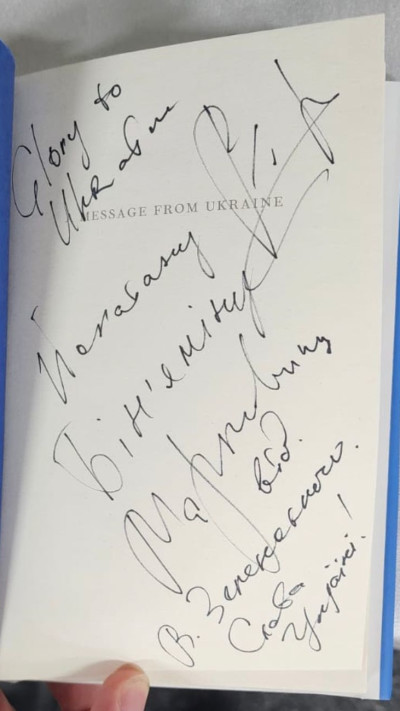 Glory to
Ukraine
MESSAGE FROM UKRAINE
Йонатану
Бін'яміну
Марковичу
від
В. Зеленського.
Слава
Україні!